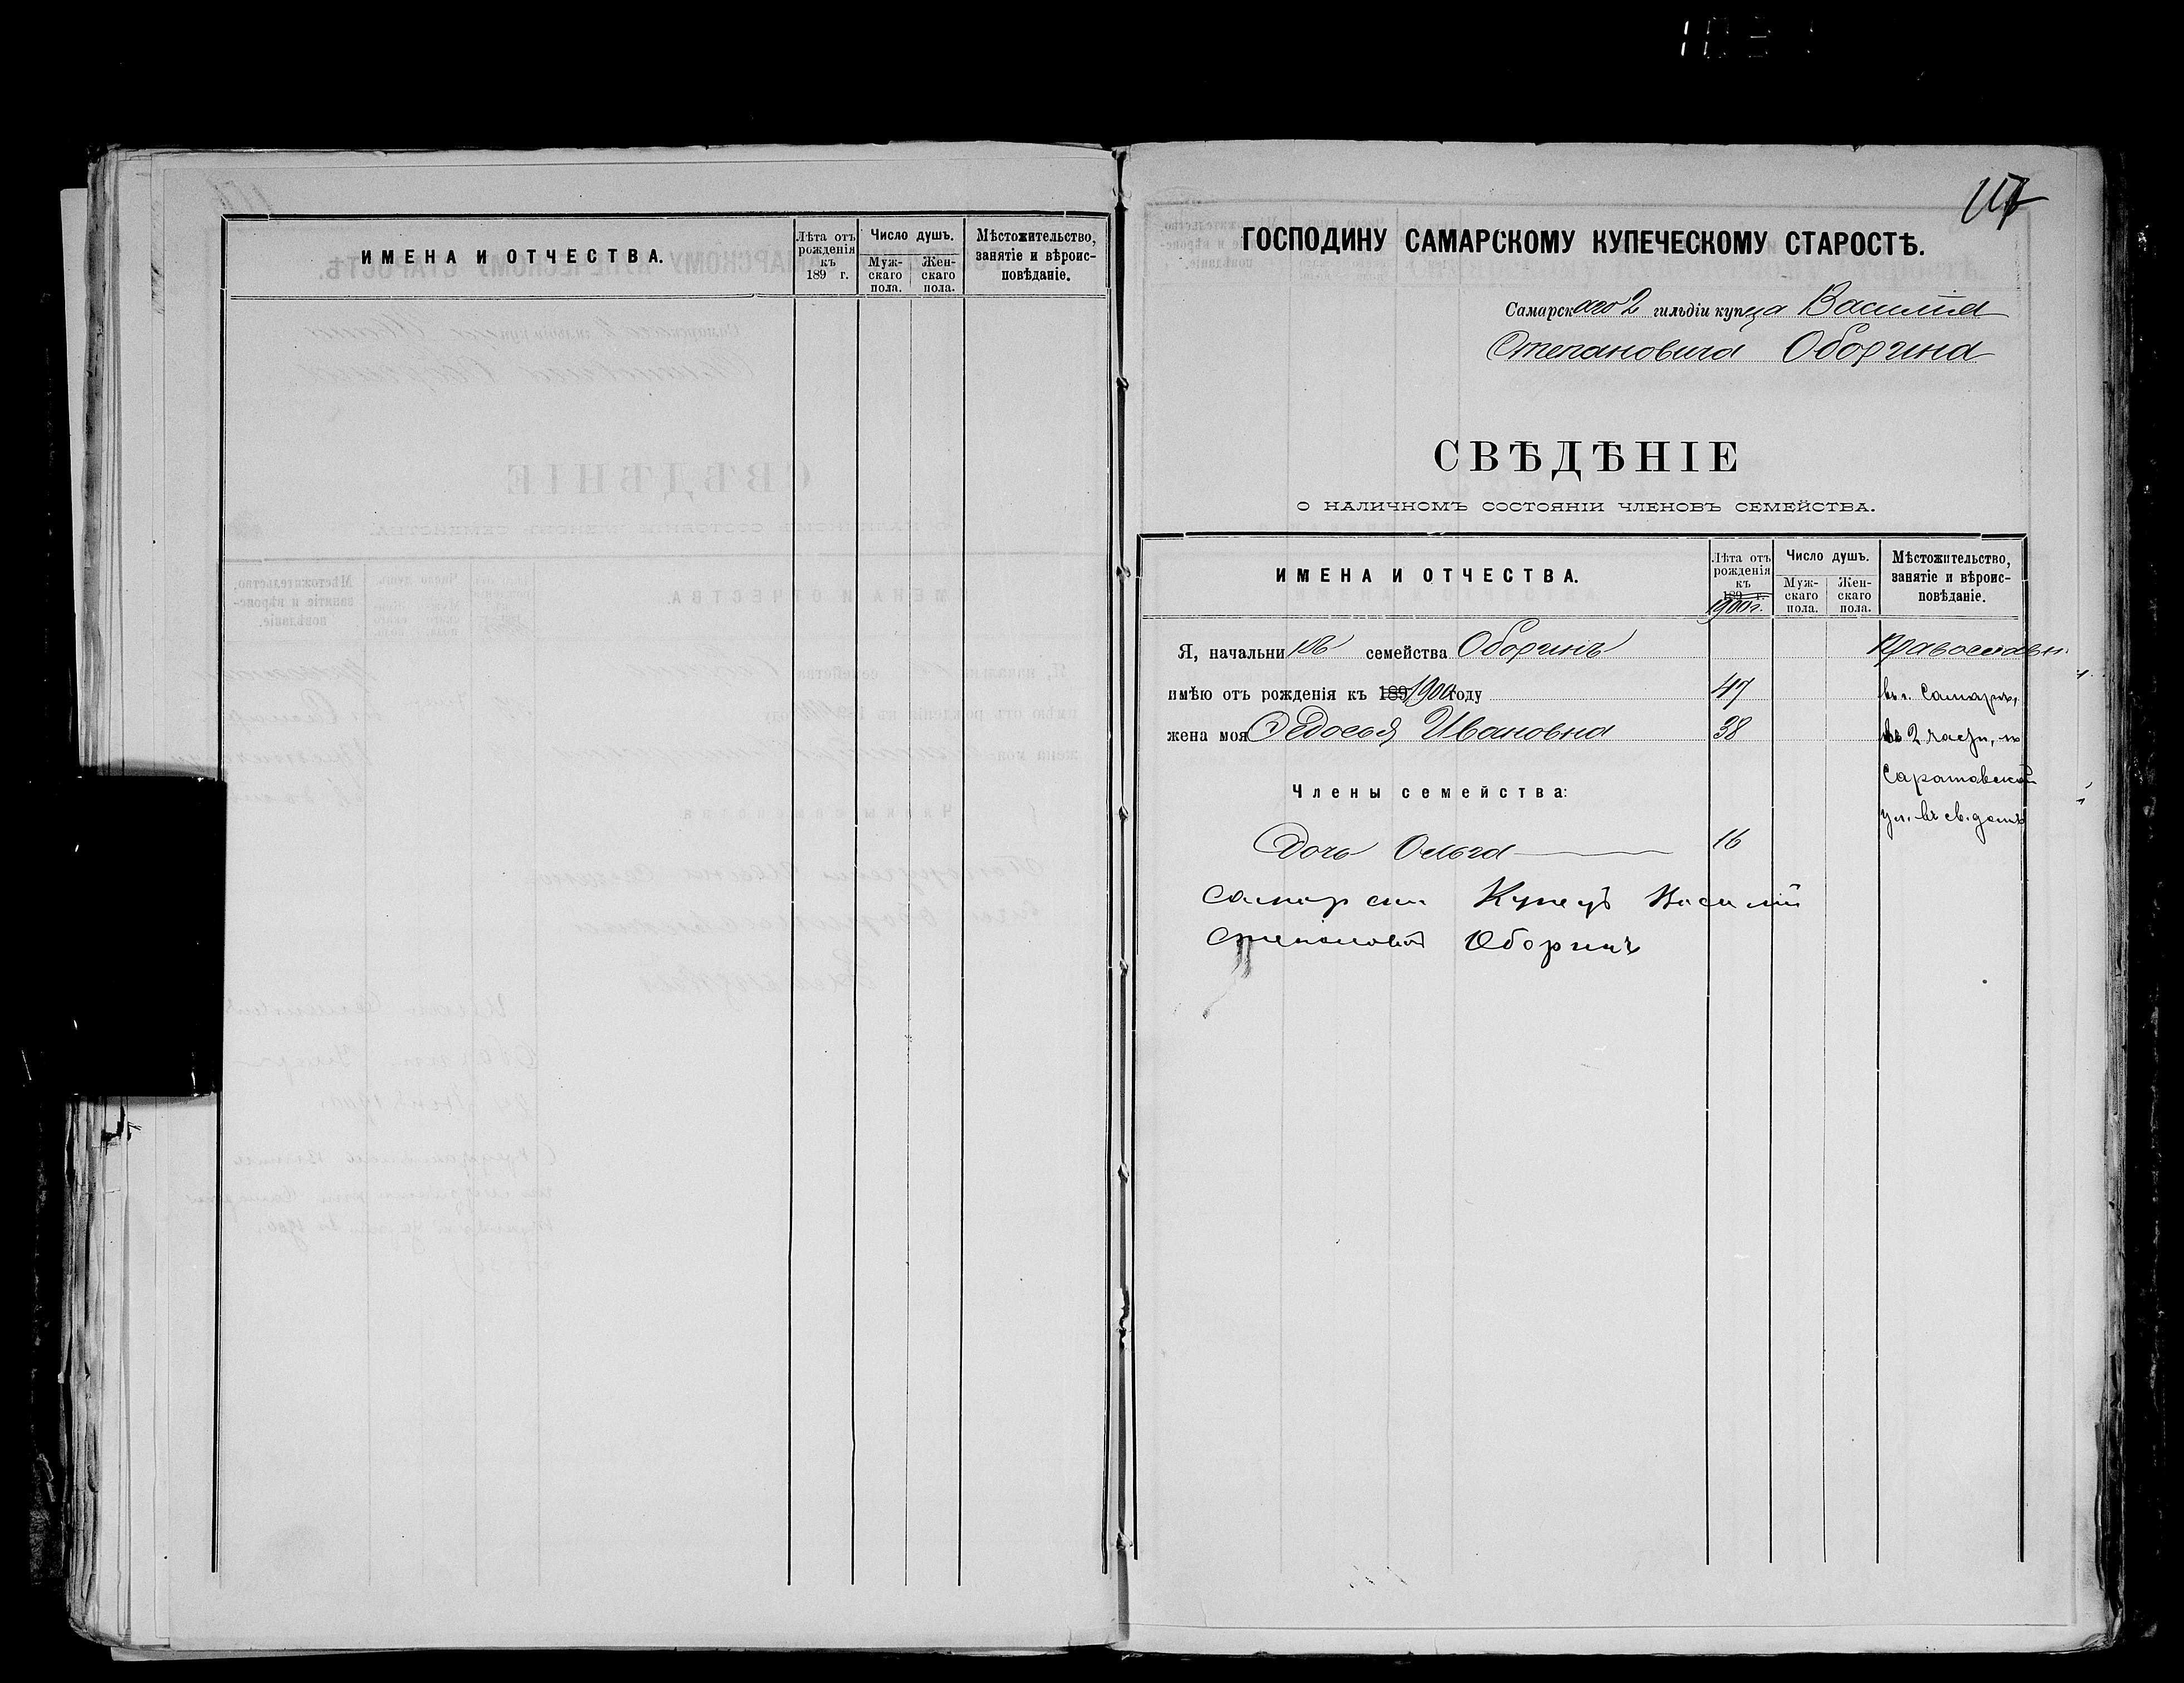 ИМЕНА И ОТЧЕСТВА.
Лѣта отъ рожденія къ 189 г.
Число душъ.
Муж-скаго пола.
Жен-скаго пола.
Мѣстожительство, занятіе и вѣроис-повѣданіе.
ГОСПОДИНУ САМАРСКОМУ КУПЕЧЕСКОМУ СТАРОСТѢ.
Самарскаго 2 гильдіи купца Василія
Степановича Оборина
СВѢДѢНІЕ
О НАЛИЧНОМЪ СОСТОЯНІИ ЧЛЕНОВЪ СЕМЕЙСТВА.
ИМЕНА И ОТЧЕСТВА.
Лѣта отъ рожденія къ 189 г. 1900 г.
Число душъ.
Муж-скаго пола.
Жен-скаго пола.
Мѣстожительство, занятіе и вѣроис-повѣданіе.
Я, начальникъ семейства Оборинъ
Православн.
имѣю отъ рожденія къ 189 1900 году 47
въ г. Самарѣ,
жена моя Ѳедосья Ивановна 38
въ 2 части, по
Саратовской
Члены семейства:
ул. въ св. домѣ
Дочь Ольга 16
Самарски Купецъ Василій
Степановъ Оборинъ